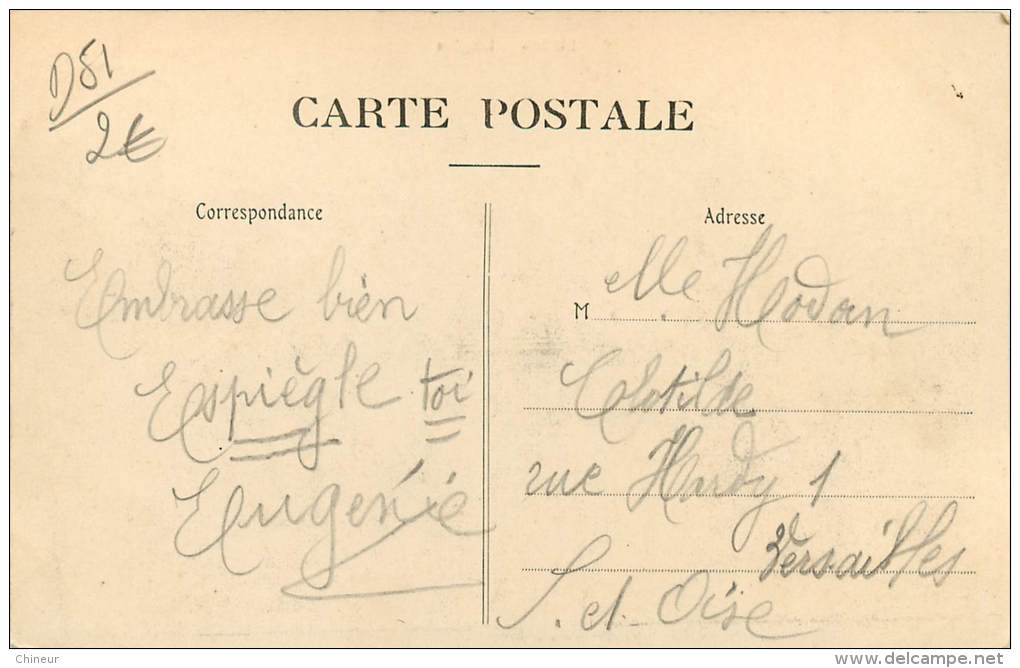 D51
2€
CARTE POSTALE
Correspondance
Embrasse bien
Espiègle toi
Eugénie
Adresse
M
Mlle Hodan
Clotilde
rue Hardy 1
Versailles
S. et-Oise
Chineur
www.delcampe.net